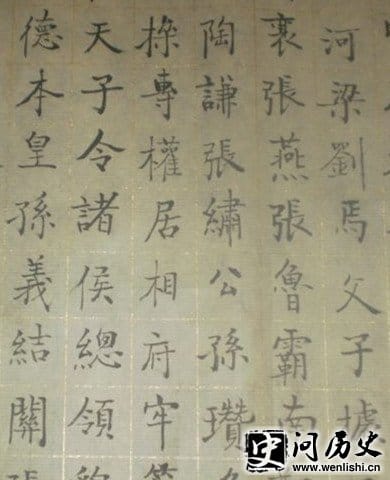 河梁劉焉父子據
襄張燕張魯霸南
陶謙張繡公孫瓚
操專權居相府牢
天子令諸侯總領
德本皇孫義結關
问历史
www.wenlishi.cn